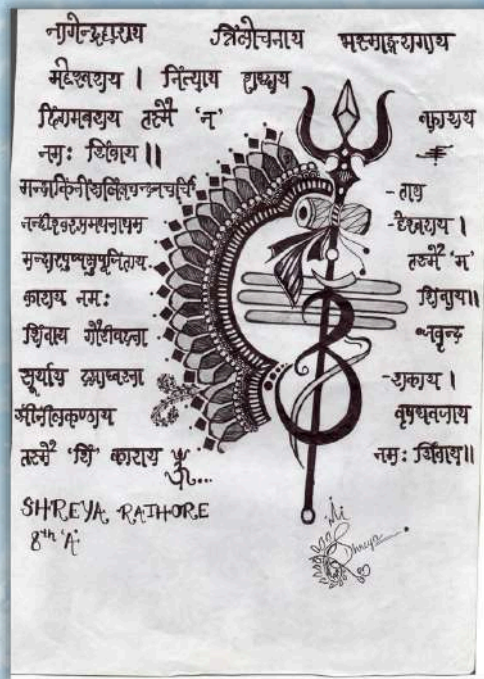 नागेन्द्रहाराय त्रिंलोचनाय भस्माङ्गरागाय
महेश्वराय । नित्याय शुद्धाय
दिगमबराय तस्मै 'न' काराय
नमः शिंवाय ॥
मन्दाकिनीशलिंलचन्दनचर्चि - ताय
नन्दीश्वरप्रमथनाथम - हेश्वराय ।
मन्दारपुष्पबहुपुष्पसुपूजिताय तस्मै 'म'
काराय नमः शिंवाय ॥
शिंवाय गौरीवदना ब्जवृन्द
सूर्याय दक्षाध्वरना - शकाय ।
श्रीनीलकण्ठाय वृषध्वजाय
तस्मै 'शिं' काराय नमः शिंवाय ॥
SHREYA RATHORE
8th 'A'
Shreya